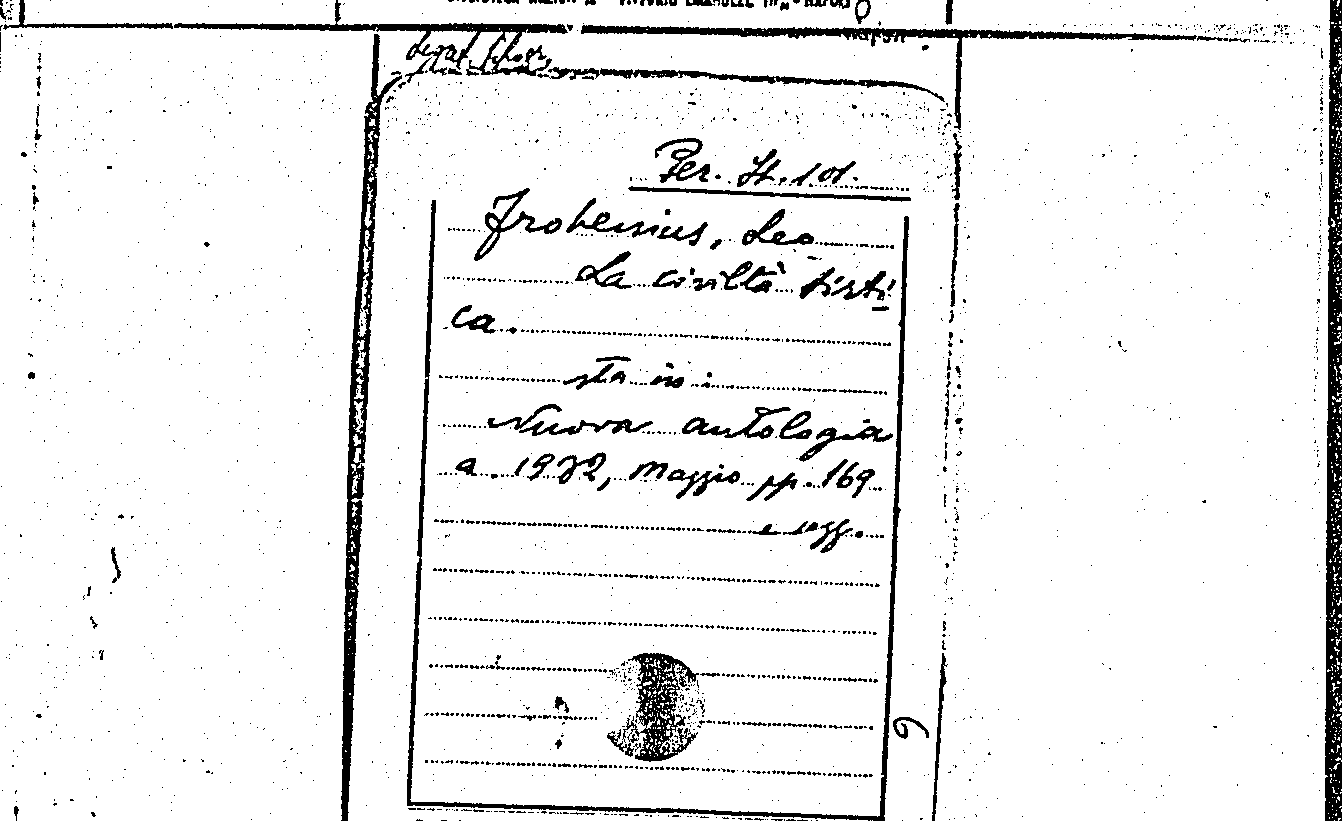 VITTORIO EMANUELE III - NAPOLI
Per. It. 101.
Frobenius, Leo
La civiltà
ca.
sta in:
Nuova antologia
a. 1932, Maggio pp. 169
e segg.